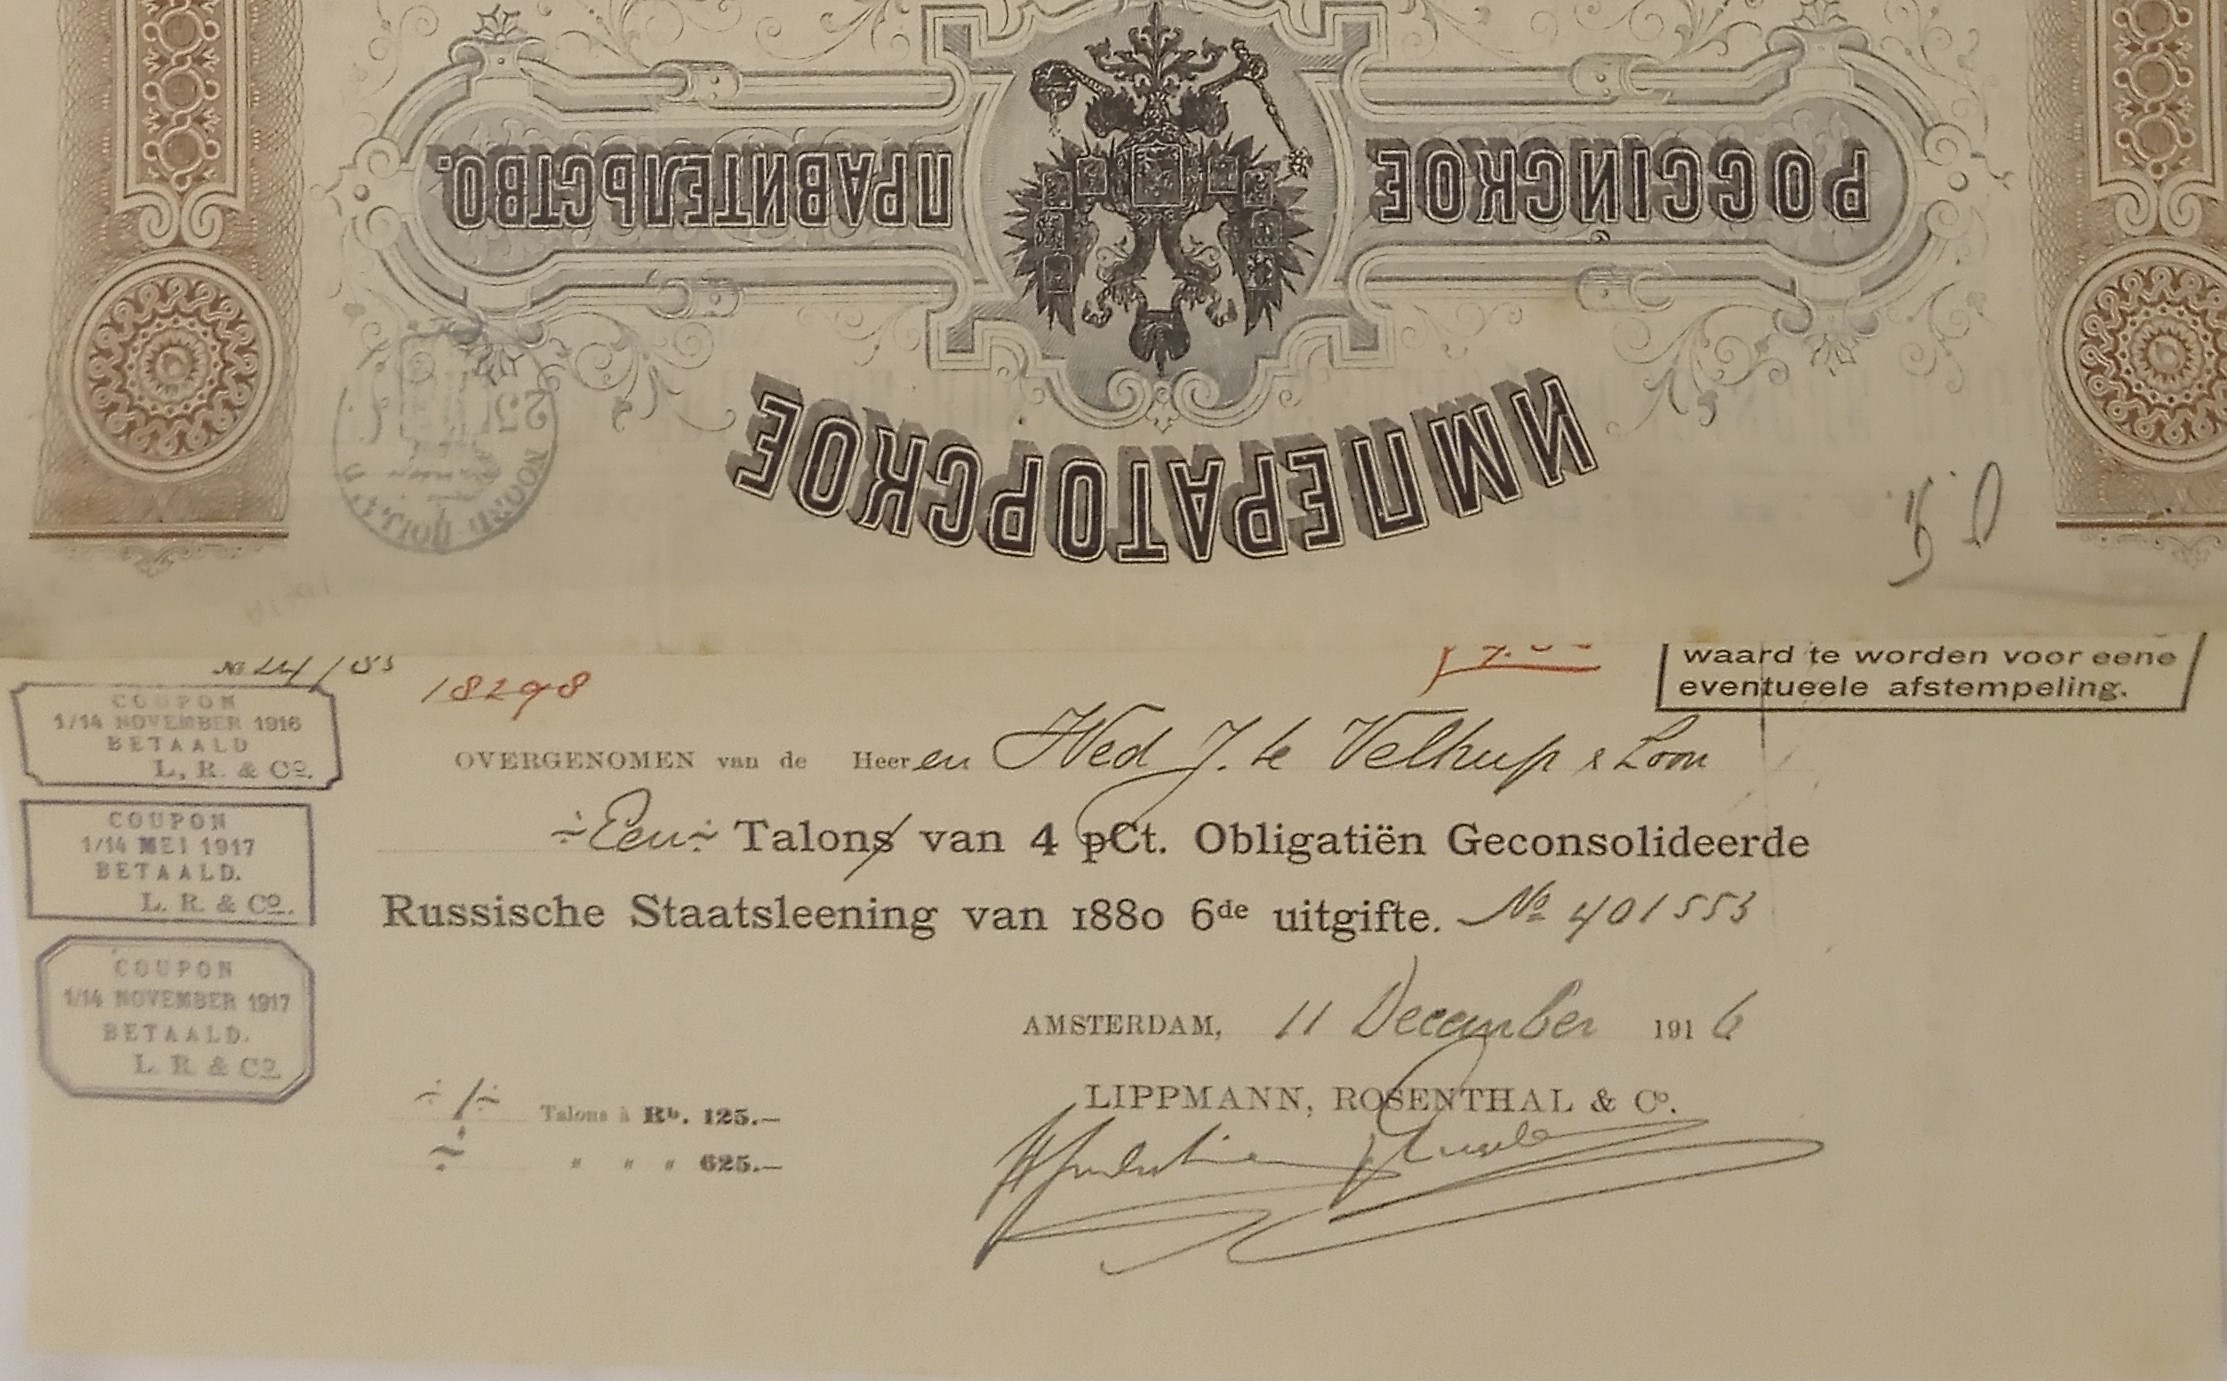 ИМПЕРАТОРСКОЕ
РОССІЙСКОЕ ПРАВИТЕЛЬСТВО.
18298
waard te worden voor eene
eventueele afstempeling.
COUPON
1/14 NOVEMBER 1916
BETAALD
L. R. & Co.
COUPON
1/14 MEI 1917
BETAALD.
L. R. & Co.
COUPON
1/14 NOVEMBER 1917
BETAALD.
L. R. & Co.
OVERGENOMEN van de Heeren Wed J. te & Loon
÷ Een ÷ Talons van 4 pCt. Obligatiën Geconsolideerde
Russische Staatsleening van 1880 6de uitgifte. No 401553
AMSTERDAM, 11 December 1916
LIPPMANN, ROSENTHAL & Co.
÷ 1 ÷ Talons à Rb. 125.—
" " " 625.—